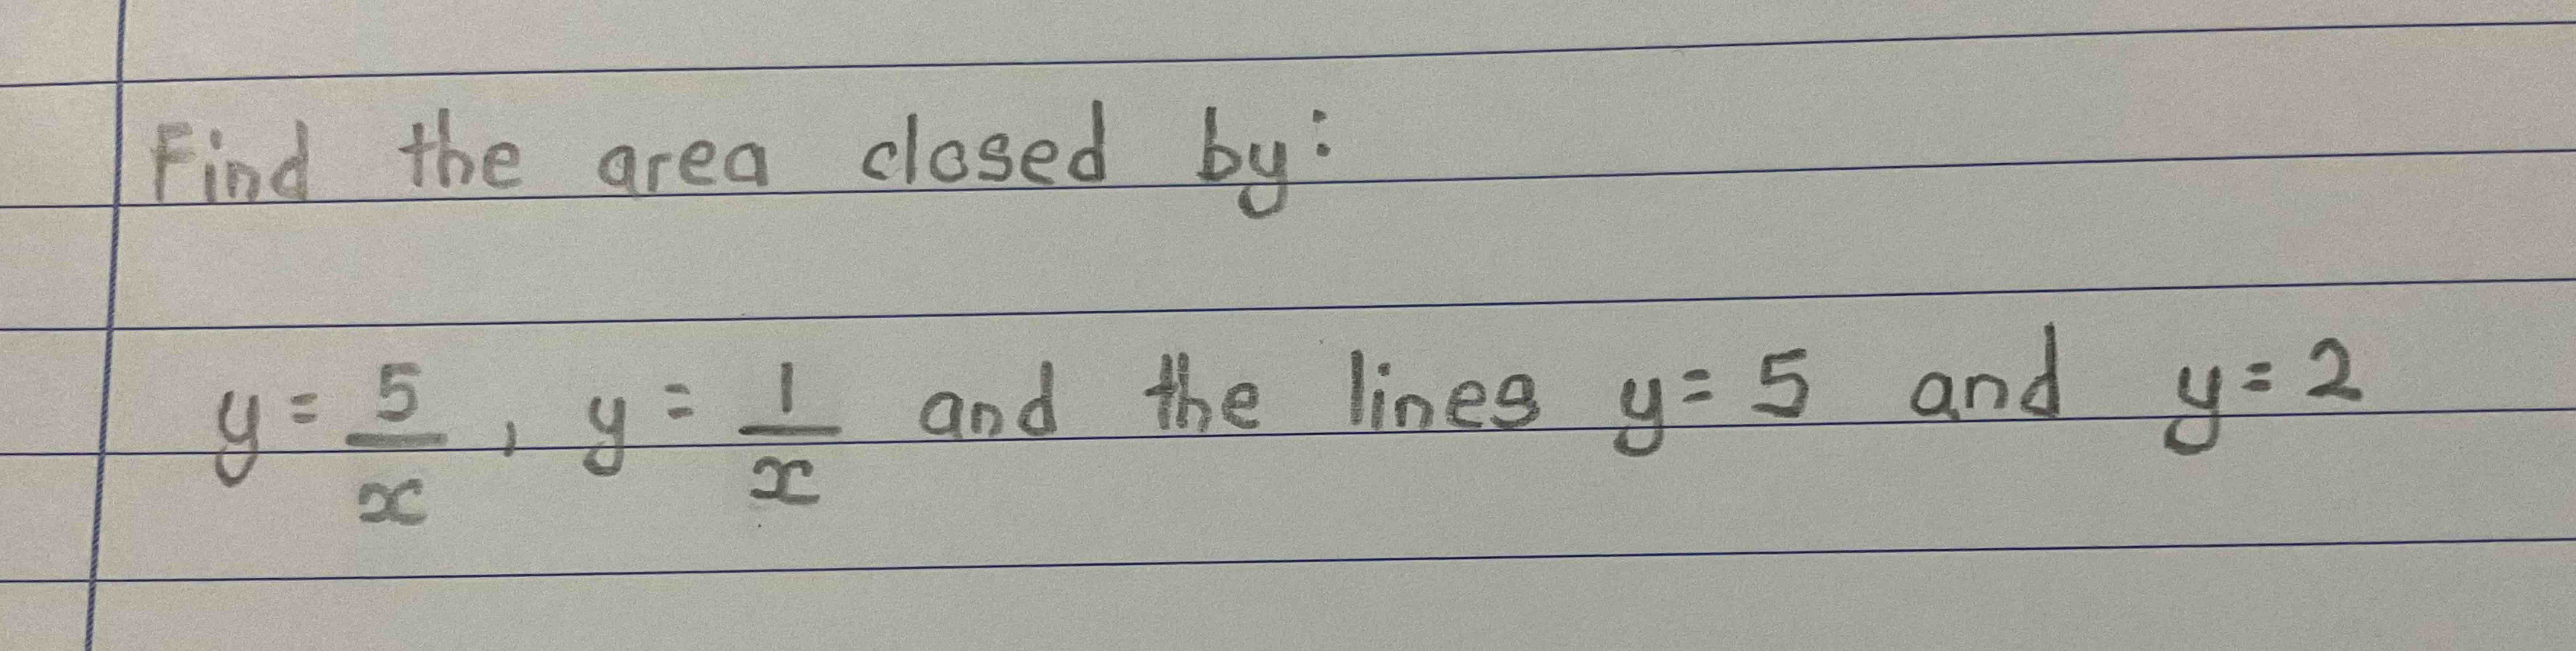 Find the area closed by:
y = 5/x, y = 1/x and the lines y = 5 and y = 2